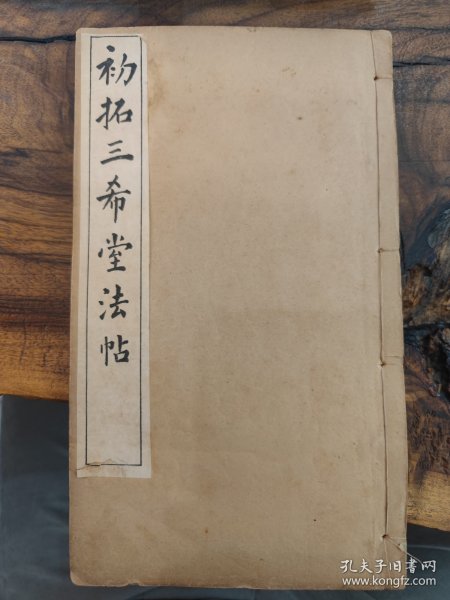 初拓三希堂法帖
孔夫子旧书网
www.kongfz.com